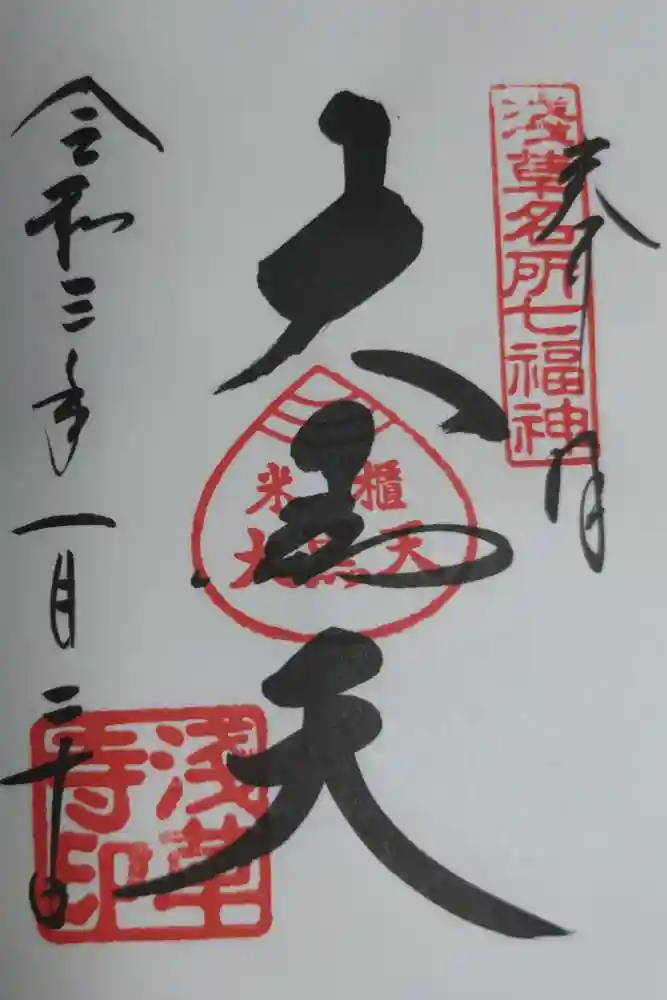 奉拝
淺草名所七福神
大黒天
米櫃
大黒天
令和三年一月二十日
淺草
寺印